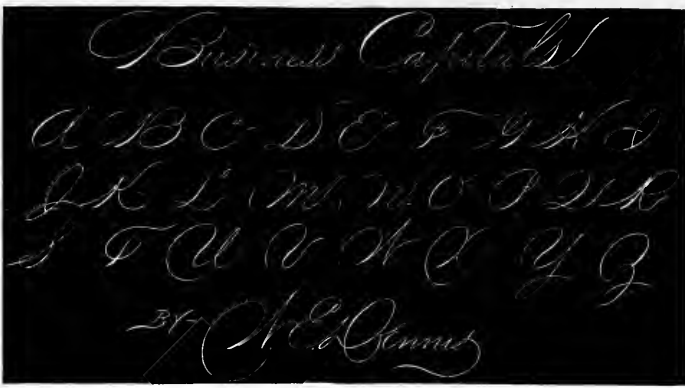 Business Capitals!
A B C D E F G H I
J K L M N O P Q R
S T U V W X Y Z
BY W. E. Dennis